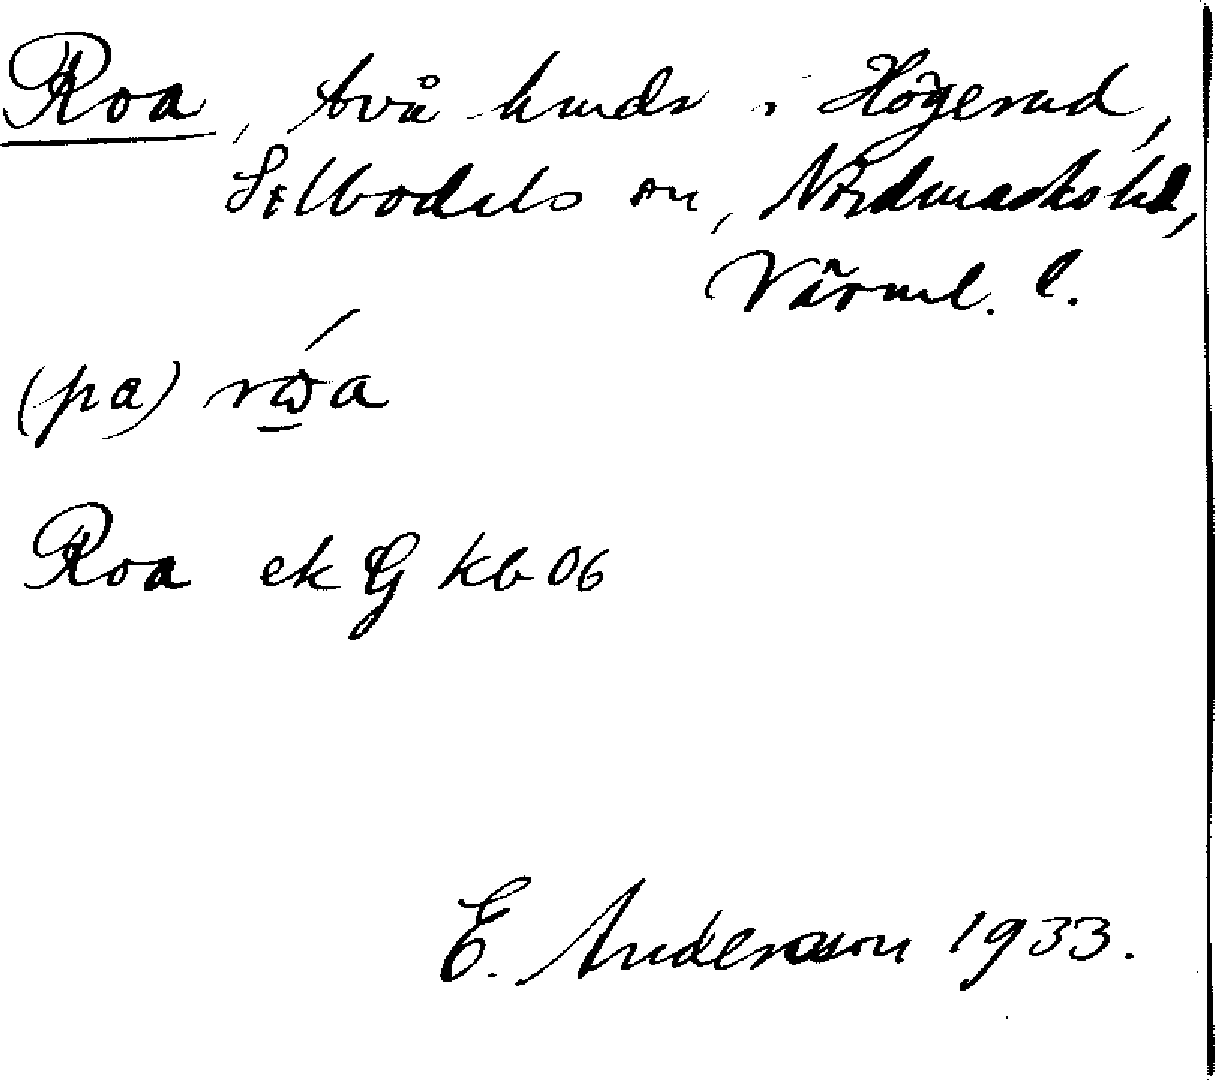 Roa, två hmdr i Högerud,
Silbodals sn, Nordmarks hd,
Värml. l.
(pa) rώ̲a
Roa ek G kb 06
E. Anderson 1933.